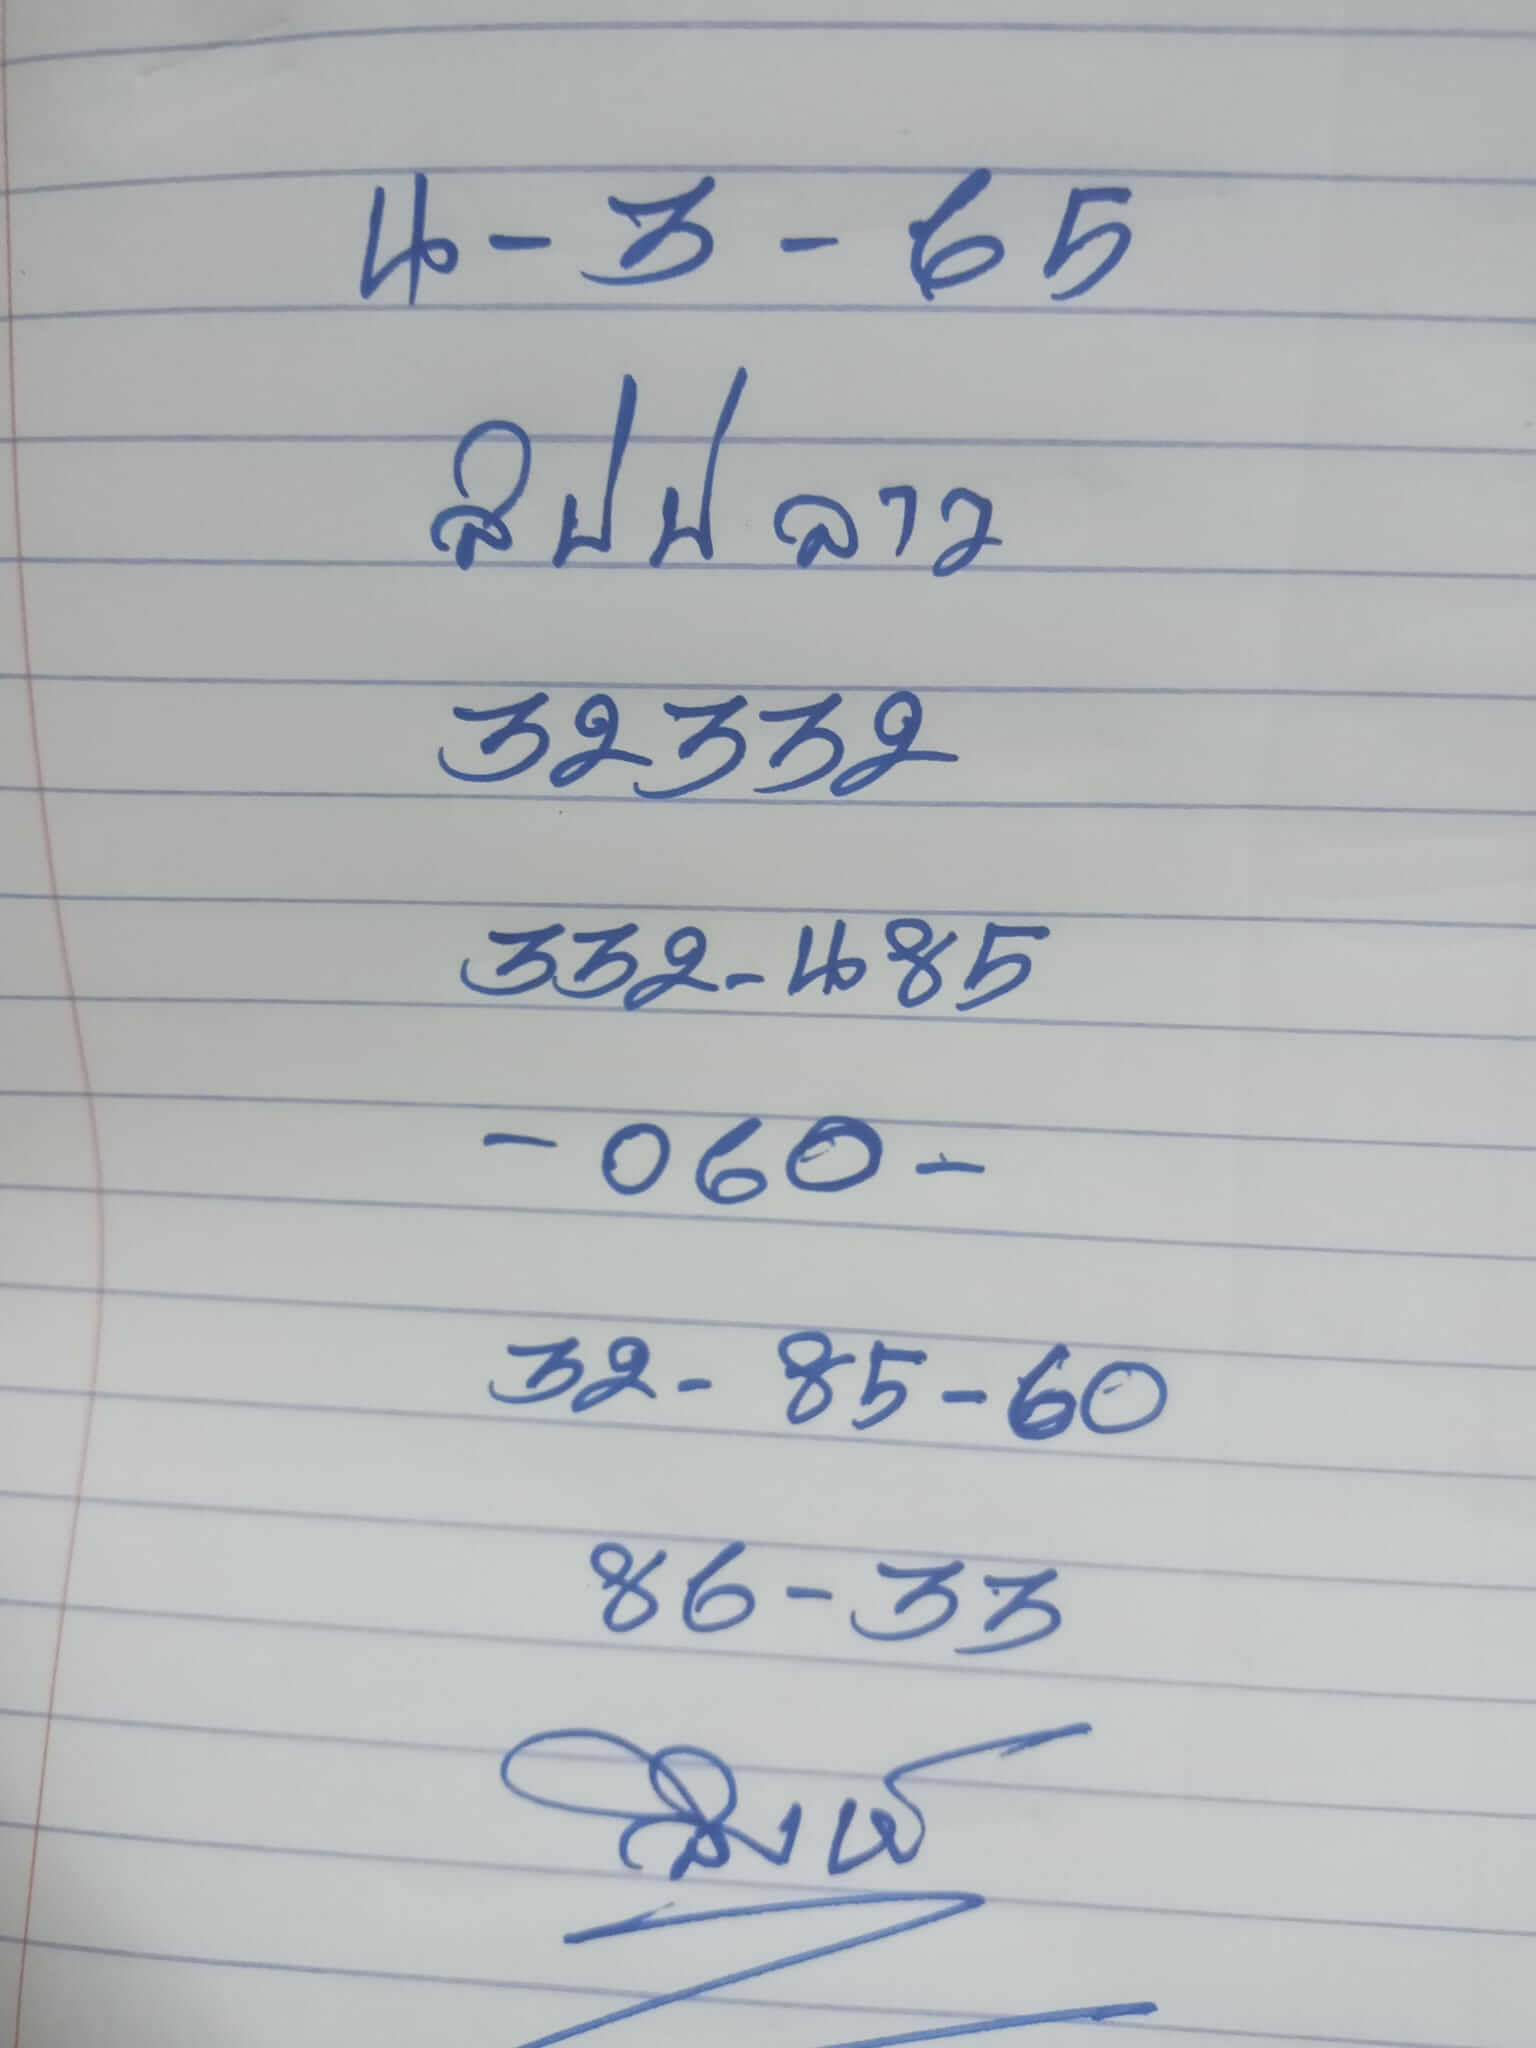 4-3-65
สิปปลาว
32332
332-485
-060-
32-85-60
86-33
สิงห์